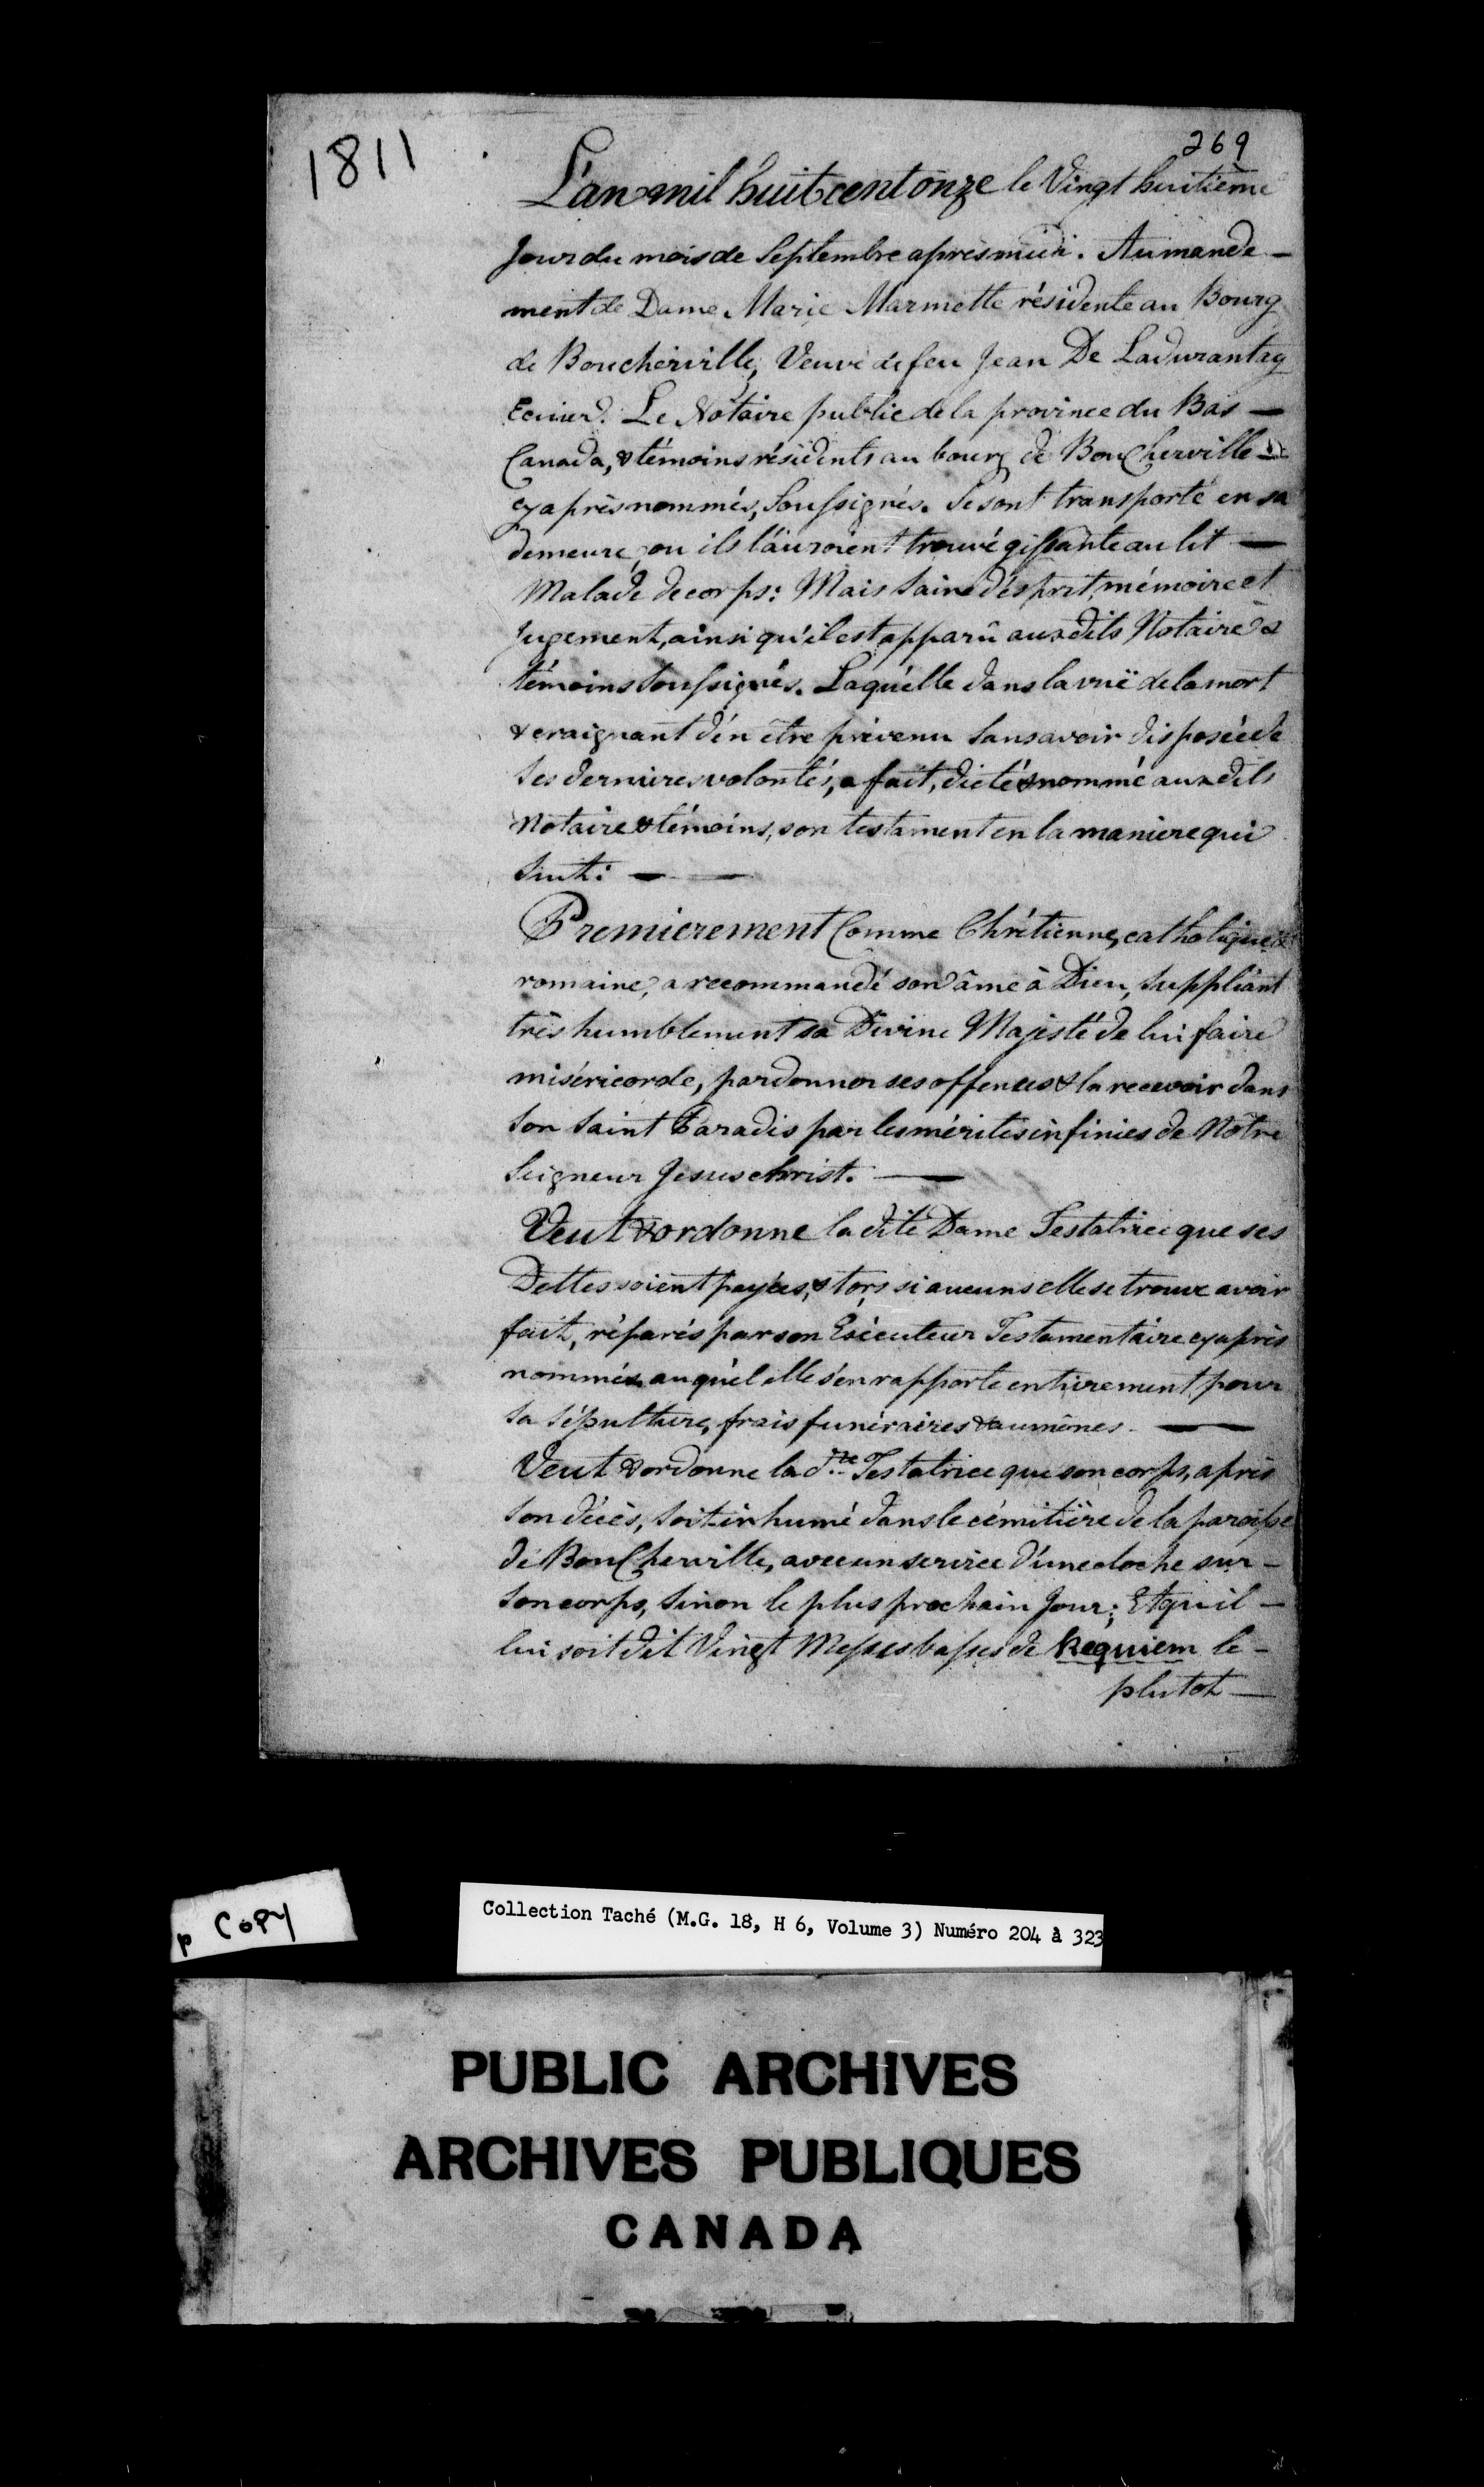 1811
269
L'an mil huit cent onze le Vingt huitième
Jour du mois de Septembre après midi. Au mande-
ment de Dame Marie Marmette résidente au Bourg
de Boucherville, Veuve de feu Jean De Ladurantay
Ecuier. Le Notaire public de la province du Bas —
Canada, & témoins résidents au bourg de Boucherville —
cy après nommés, Soussignés. Se sont transporté en sa
demeure, ou ils l'auroient trouvé gissante au lit —
Malade de corps: Mais saine d'ésprit, mémoire et
Jugement, ainsi qu'il est apparû aux dits Notaire &
témoins Soussignés. Laquélle dans la vuë de la mort
& craignant d'én être prévenu sans avoir disposée de
ses dernieres volontés, a fait, dicté & nommé aux dits
Notaire & témoins, son testament en la maniere qui
suit: — —
Premierement Comme Chrétienne, catholique &
romaine, a recommandé son âme à Dieu, suppliant
très humblement sa Divine Majesté de lui faire
miséricorde, pardonner ses offences & la recevoir dans
son saint Paradis par les mérites infinies de Notre
Seigneur Jesus christ. —
Veut & ordonne la dite Dame Testatrice que ses
Dettes soient payées, & tors si aucuns elle se trouve avoir
fait, réparés par son Exécuteur Testamentaire cy après
nommé auquél elle s'en rapporte entierement pour
sa sépulture, frais funéraires & aumônes. —
Veut & ordonne la dte Testatrice que son corps, après
son décès, soit inhumé dans le cémitière de la paroisse
de Boucherville, avec un service d'une cloche sur -
son corps, sinon le plus prochain Jour; Et qu'il -
lui soit dit Vingt Messes basses de Requiem le -
plutot —
p COPY
Collection Taché (M.G. 18, H 6, Volume 3) Numéro 204 à 323
PUBLIC ARCHIVES
ARCHIVES PUBLIQUES
CANADA